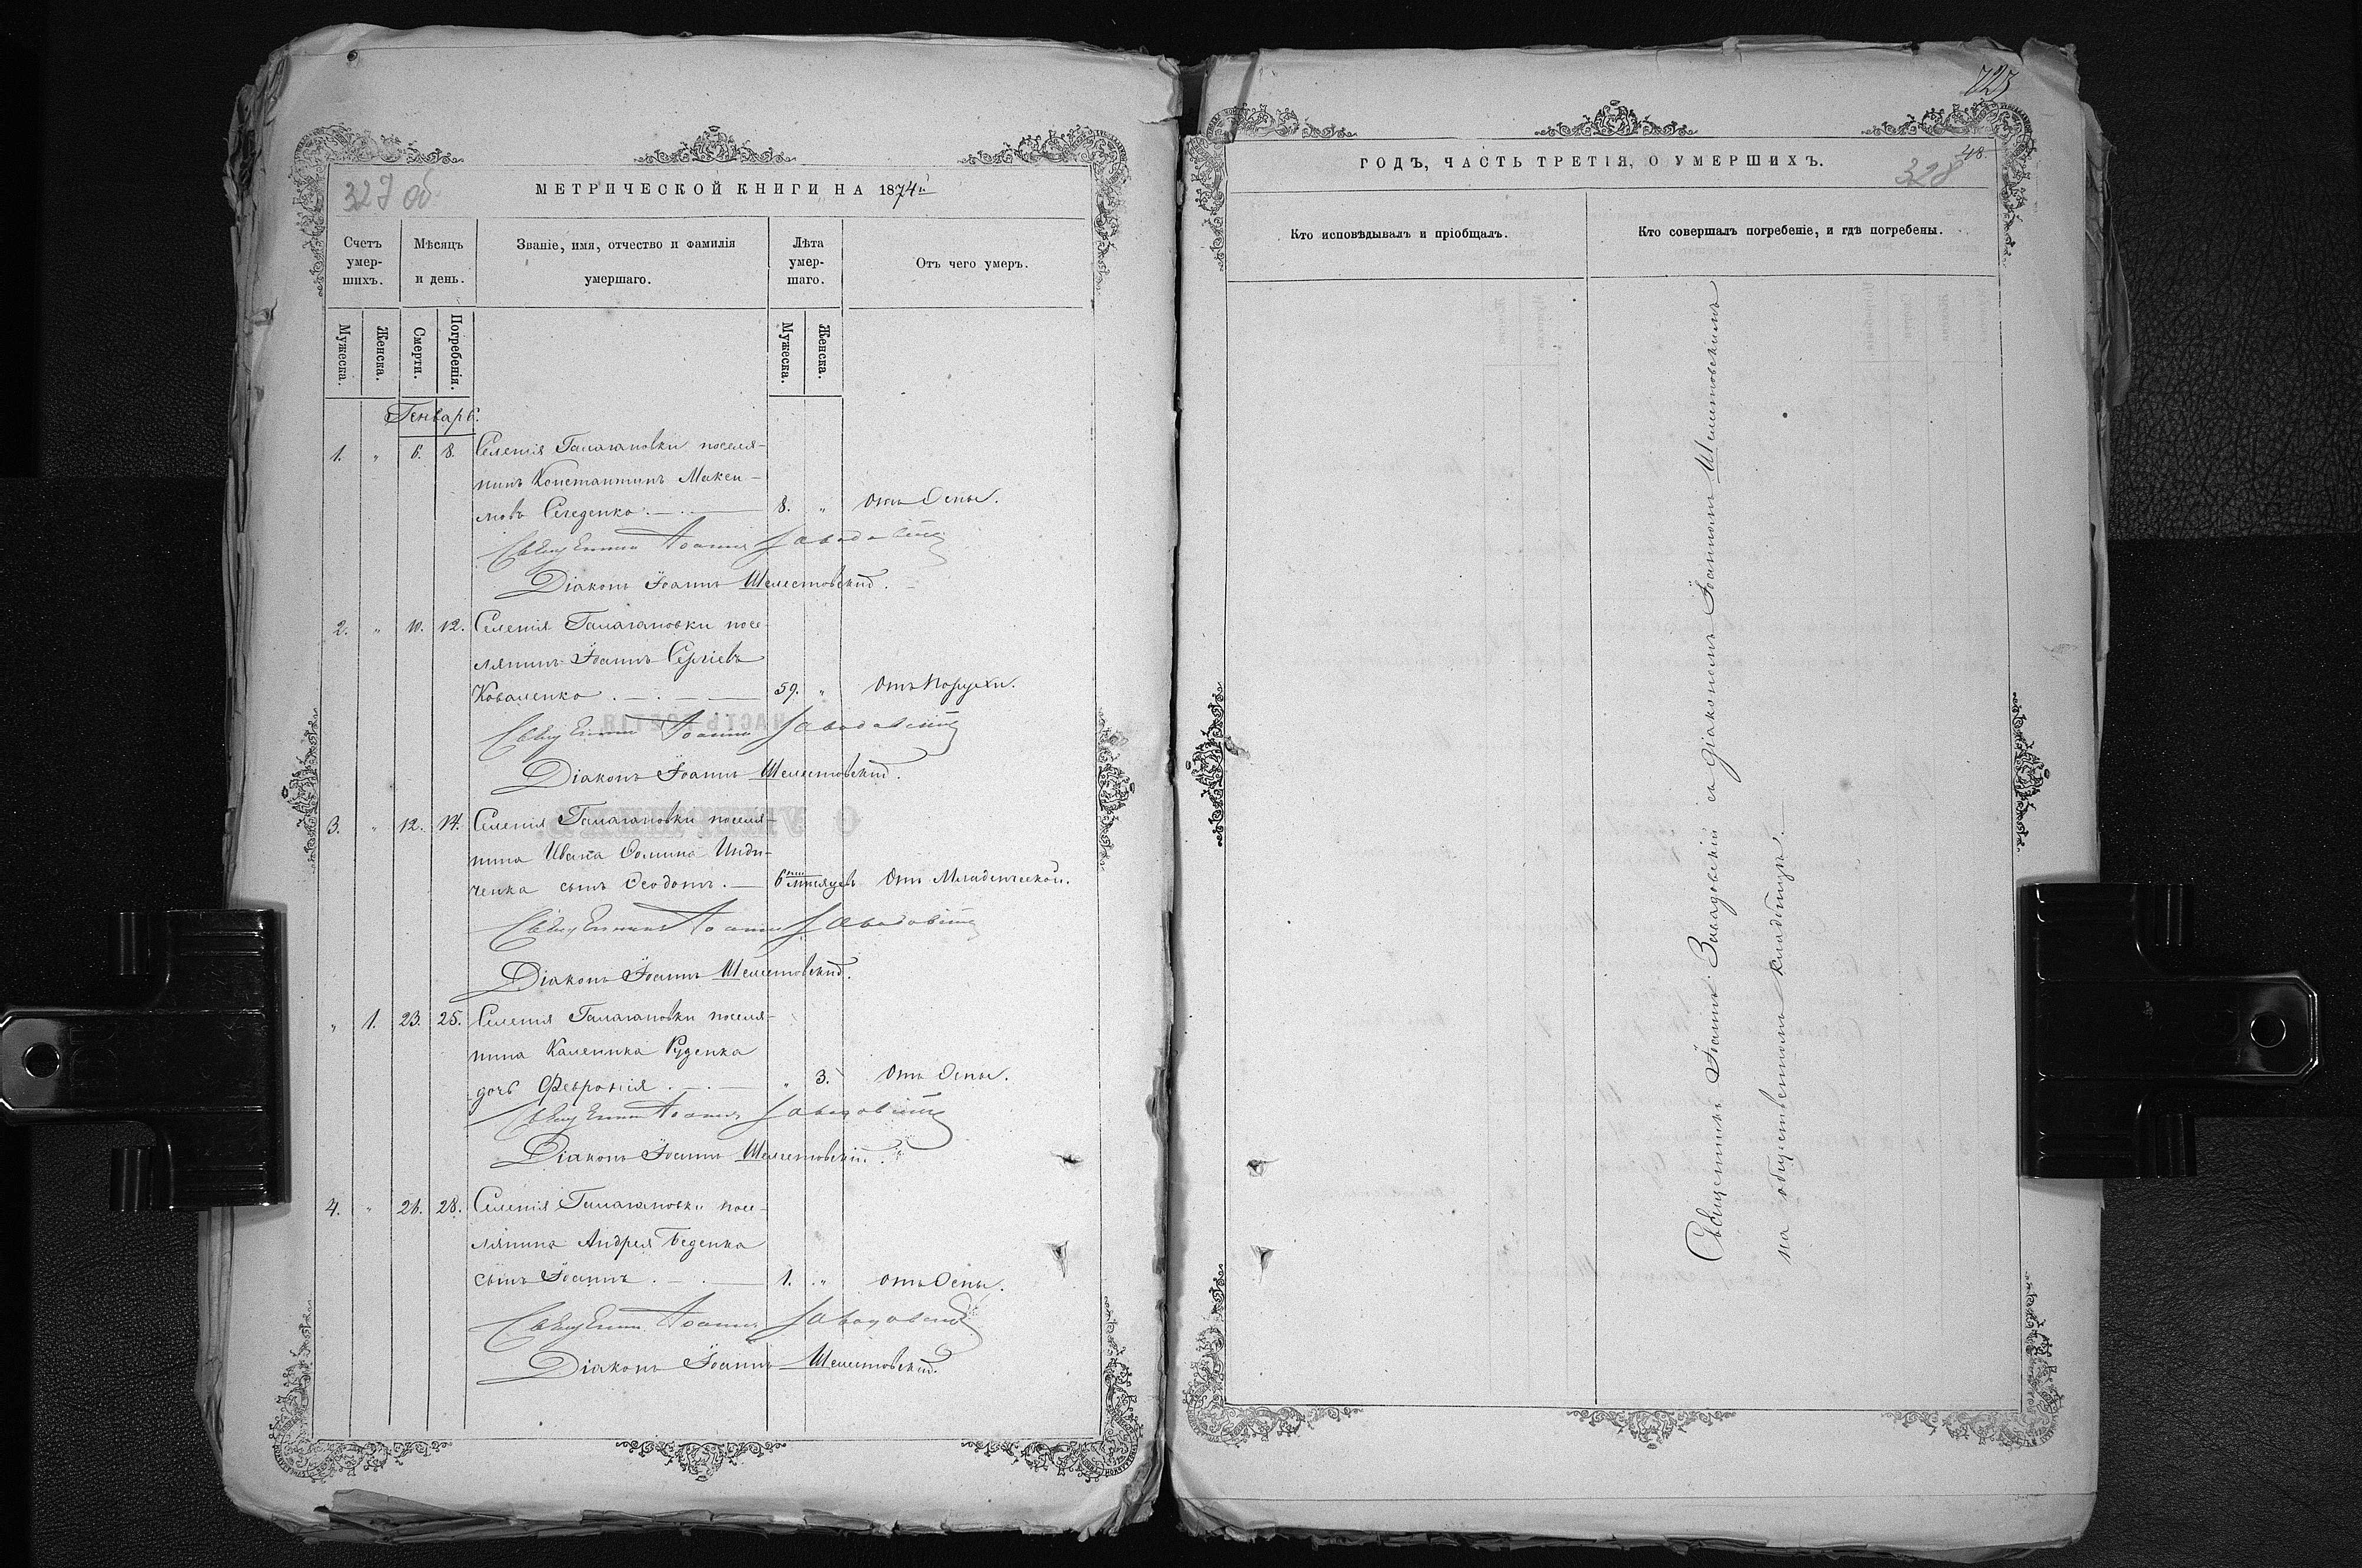 327 об.
МЕТРИЧЕСКОЙ КНИГИ НА 1874й
Счетъ умер-шихъ.
Мѣсяцъ и день.
Званіе, имя, отчество и фамилія умершаго.
Лѣта умер-шаго.
Отъ чего умеръ.
Мужеска.
Женска.
Смерти.
Погребенія.
Мужеска.
Женска.
Генварь.
1. " 6. 8. Селенія Галагановки поселя-
нинъ Константинъ Макси-
мовъ Середенко. 8. " Отъ Оспы.
Священникъ Іоаннъ Завадовскій
Діаконъ Іоаннъ Шелестовскій.
2. " 10. 12. Селенія Галагановки посе-
лянинъ Іоаннъ Сергіевъ
Коваленко. 59. " Отъ
Священникъ Іоаннъ Завадовскій
Діаконъ Іоаннъ Шелестовскій.
3. " 12. 14. Селенія Галагановки поселя-
нина Ивана Фомина Инди-
ченка сынъ Феодотъ. 6ти мѣсяцевъ Отъ Младенческой.
Священникъ Іоаннъ Завадовскій
Діаконъ Іоаннъ Шелестовскій.
" 1. 23. 25. Селенія Галагановки поселя-
нина Каленика Руденка
дочь Февронія. " 3. Отъ Оспы.
Священникъ Іоаннъ Завадовскій
Діаконъ Іоаннъ Шелестовскій.
4. " 26. 28. Селенія Галагановки посе-
лянина Андрея Беденка
сынъ Іоаннъ. 1. " Отъ Оспы.
Священникъ Іоаннъ Завадовскій
Діаконъ Іоаннъ Шелестовскій.
723
48.
328
ГОДЪ, ЧАСТЬ ТРЕТІЯ, О УМЕРШИХЪ.
Кто исповѣдывалъ и пріобщалъ.
Кто совершалъ погребеніе, и гдѣ погребены.
Священникъ Іоаннъ Завадовскій съ діакономъ Іоанномъ Шелестовскимъ
на общественномъ кладбищѣ.